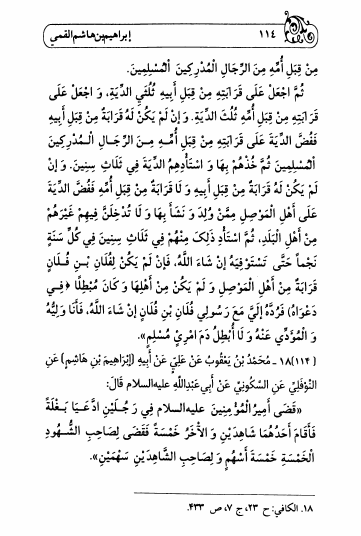 ١١٤ ابراهیم بن هاشم القمي
مِنْ قِبَلِ أُمِّهِ مِنَ الرِّجَالِ الْمُدْرِكِينَ الْمُسْلِمِينَ.
ثُمَّ اجْعَلْ عَلَى قَرَابَتِهِ مِنْ قِبَلِ أَبِيهِ ثُلُثَيِ الدِّيَةِ، وَ اجْعَلْ عَلَى
قَرَابَتِهِ مِنْ قِبَلِ أُمِّهِ ثُلُثَ الدِّيَةِ. وَ إِنْ لَمْ يَكُنْ لَهُ قَرَابَةٌ مِنْ قِبَلِ أَبِيهِ
فَفُضَّ الدِّيَةَ عَلَى قَرَابَتِهِ مِنْ قِبَلِ أُمِّهِ مِنَ الرِّجَالِ الْمُدْرِكِينَ
الْمُسْلِمِينَ ثُمَّ خُذْهُمْ بِهَا وَ اسْتَأْدِهِمُ الدِّيَةَ فِي ثَلَاثِ سِنِينَ. وَ إِنْ
لَمْ يَكُنْ لَهُ قَرَابَةٌ مِنْ قِبَلِ أَبِيهِ وَ لَا قَرَابَةٌ مِنْ قِبَلِ أُمِّهِ فَفُضَّ الدِّيَةَ
عَلَى أَهْلِ الْمَوْصِلِ مِمَّنْ وُلِدَ وَ نَشَأَ بِهَا وَ لَا تُدْخِلَنَّ فِيهِمْ غَيْرَهُمْ
مِنْ أَهْلِ الْبَلَدِ، ثُمَّ اسْتَأْدِ ذَلِكَ مِنْهُمْ فِي ثَلَاثِ سِنِينَ فِي كُلِّ سَنَةٍ
نَجْماً حَتَّى تَسْتَوْفِيَهُ إِنْ شَاءَ اللَّهُ، فَإِنْ لَمْ يَكُنْ لِفُلَانِ بْنِ فُلَانٍ
قَرَابَةٌ مِنْ أَهْلِ الْمَوْصِلِ وَ لَمْ يَكُنْ مِنْ أَهْلِهَا وَ كَانَ مُبْطِلًا ﴿فِي
دَعْوَاهُ﴾ فَرُدَّهُ إِلَيَّ مَعَ رَسُولِي فُلَانِ بْنِ فُلَانٍ إِنْ شَاءَ اللَّهُ، فَأَنَا وَلِيُّهُ
وَ الْمُؤَدِّي عَنْهُ وَ لَا أُبْطِلُ دَمَ امْرِئٍ مُسْلِمٍ».
(١١٤)١٨ ـ مُحَمَّدُ بْنُ يَعْقُوبَ عَنْ عَلِيٍّ عَنْ أَبِيهِ (إِبْرَاهِيمَ بْنِ هَاشِمٍ) عَنِ
النَّوْفَلِيِّ عَنِ السَّكُونِيِّ عَنْ أَبِي عَبْدِاللَّهِ علیه‌السلام قَالَ:
«قَضَى أَمِيرُ الْمُؤْمِنِينَ علیه‌السلام فِي رَجُلَيْنِ ادَّعَيَا بَغْلَةً
فَأَقَامَ أَحَدُهُمَا شَاهِدَيْنِ وَ الْآخَرُ خَمْسَةً فَقَضَى لِصَاحِبِ الشُّهُودِ
الْخَمْسَةِ خَمْسَةَ أَسْهُمٍ وَ لِصَاحِبِ الشَّاهِدَيْنِ سَهْمَيْنِ».
١٨. الكافي: ح ٢٣، ج ٧، ص ٤٣٣.